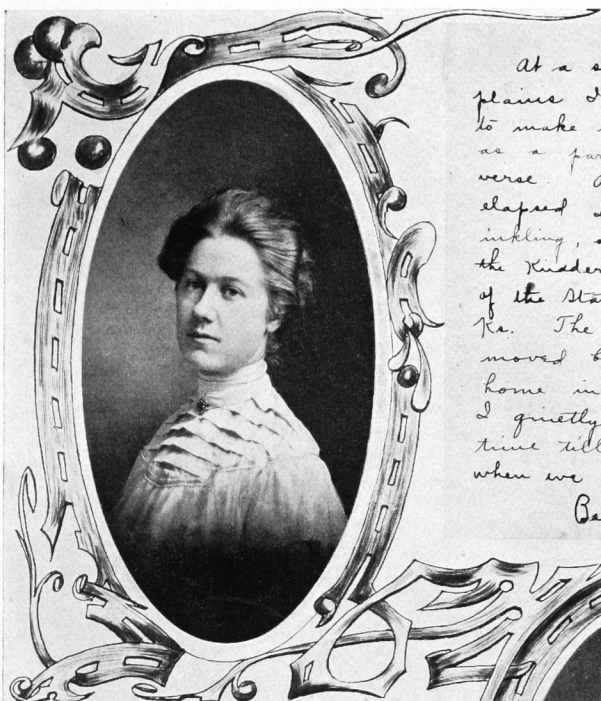 At a s
plains I
to make
as a par
verse. A
elapsed
inkling, a
the Kidder
of the Sta
Ks. The
moved b
home in
I quietly
time till
when we
Be